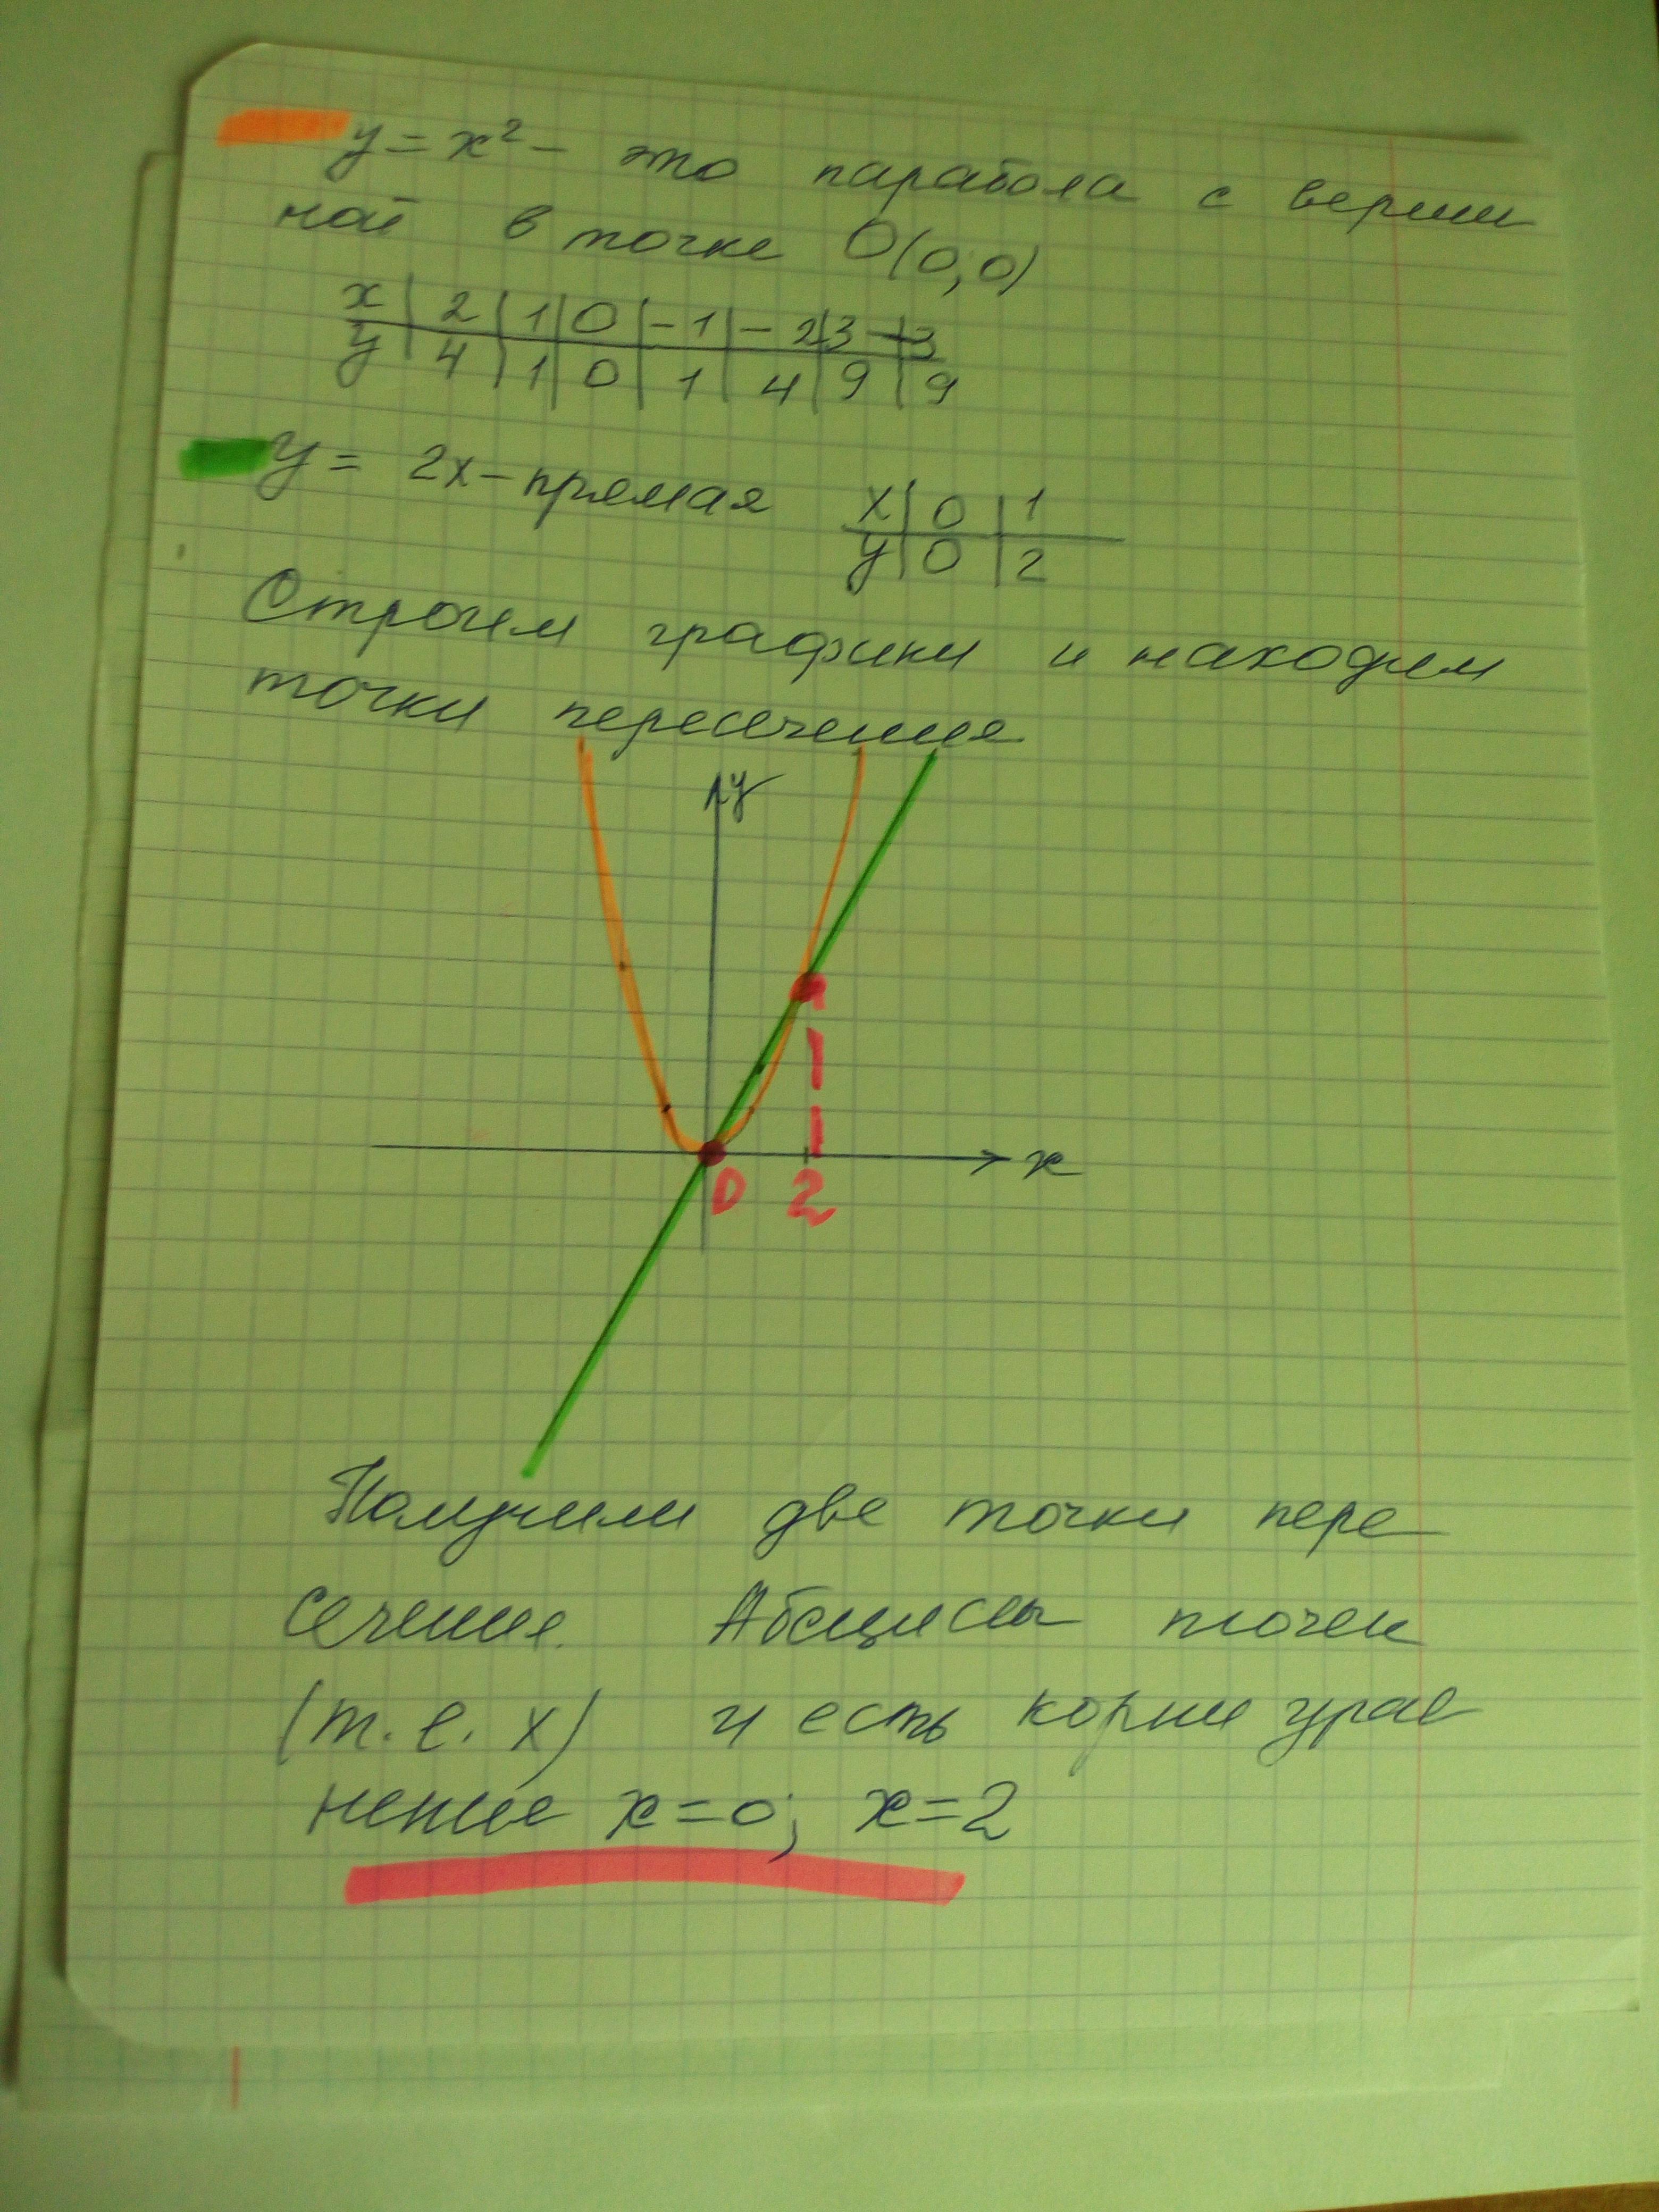 y = x² - это парабола с верши
ной в точке O(0;0)
x | 2 | 1 | 0 | -1 | -2 | 3 | -3
y | 4 | 1 | 0 | 1 | 4 | 9 | 9
y = 2x - прямая
x | 0 | 1
y | 0 | 2
Строим графики и находим
точки пересечения
y
x
0 2
Получили две точки пере
сечения. Абсциссы точек
(т.е. x) и есть корни урав
нения x=0; x=2